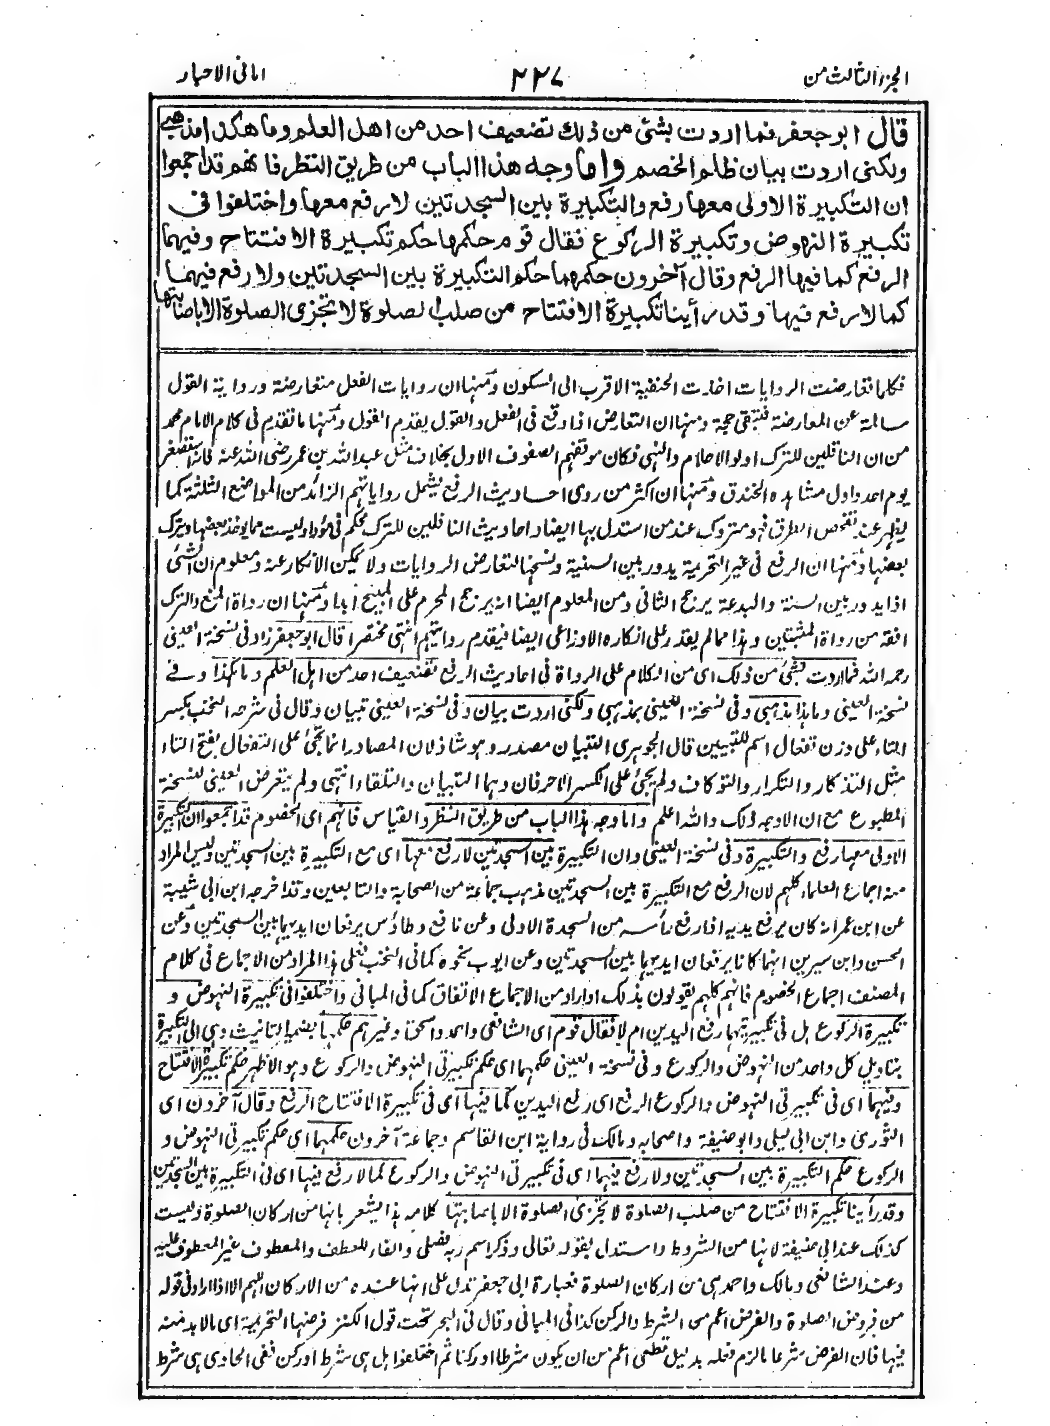 الجزء الثالث من
٢٢٧
امانى الاحبار
قال ابوجعفر فما اردت بشئ من ذلك تضعيف احد من اهل العلم وما هكذا مذهبى
ولكنى اردت بيان ظلم الخصم واما وجه هذا الباب من طريق النظر فانهم قد اجمعوا
ان التكبيرة الاولى معها رفع والتكبيرة بين السجدتين لا رفع معها واختلفوا فى
تكبيرة النهوض وتكبيرة الركوع فقال قوم حكمها حكم تكبيرة الافتتاح وفيهما
الرفع كما فيها الرفع وقال آخرون حكمهما حكم التكبيرة بين السجدتين ولا رفع فيهما
كما لا رفع فيها وقد رأينا تكبيرة الافتتاح من صلب الصلوة لا تجزى الصلوة الا باصابتها
فكلما تعارضت الروايات اختارت الحنفية الاقرب الى السكون ومنها ان روايات الفعل متعارضة ورواية القول
سالمة عن المعارضة فتبقى حجة ومنها ان التعارض اذا وقع فى الفعل والقول يقدم القول ومنها ما تقدم فى كلام الامام محمد
من ان الناقلين للترك اولو الاحلام والنهى فكان موقفهم الصفوف الاول بخلاف مثل عبدالله بن عمر رضى الله عنه فانه استصغر
يوم احد واول مشاهده الخندق ومنها ان اكثر من روى احاديث الرفع تشمل رواياتهم الزائد من المواضع الثلثة كما
يظهر عند تفحص الطرق فهو متروك عند من استدل بها ايضا واحاديث الناقلين للترك محكم فى مؤداه ليست مما يوخذ بعضها ويترك
بعضها ومنها ان الرفع فى غير التحريمة يدور بين السنية ونسخها لتعارض الروايات ولا يمكن الانكار عنه ومعلوم ان الشئ
اذا يدور بين السنة والبدعة يرجح الثانى ومن المعلوم ايضا انه يرجح المحرم على المبيح ابدا ومنها ان رواة المنع والترك
افقه من رواة المثبتين وهذا مما لم يقدر على انكاره الاوزاعى ايضا فيقدم روايتهم انتهى مختصرا قال ابوجعفر زاد فى نسخة العينى
رحمه الله فما اردت بشئ من ذلك اى من الكلام على الرواة فى احاديث الرفع تضعيف احد من اهل العلم وما هكذا وفى
نسخة العينى وما هذا مذهبى وفى نسخة العينى بمذهبى ولكنى اردت بيان وفى نسخة العينى تبيان وقال فى شرحه النخب بكسر
التاء على وزن تفعال اسم للتبيين قال الجوهرى التبيان مصدر وهو شاذ لان المصادر انما تجئ على التفعال بفتح التاء
مثل التذكار والتكرار والتوكاف ولم يجئ على الكسر الا حرفان وهما التبيان والتلقاء انتهى ولم يتعرض العينى للنسخة
المطبوع مع ان الاوجه ذلك والله اعلم واما وجه هذا الباب من طريق النظر والقياس فانهم اى الخصوم قد اجمعوا ان التكبيرة
الاولى معها رفع والتكبيرة وفى نسخة العينى وان التكبيرة بين السجدتين لا رفع معها اى مع التكبيرة بين السجدتين وليس المراد
منه اجماع العلماء كلهم لان الرفع مع التكبيرة بين السجدتين مذهب جماعة من الصحابة والتابعين وقد اخرجه ابن ابى شيبة
عن ابن عمر انه كان يرفع يديه اذا رفع رأسه من السجدة الاولى وعن نافع وطاؤس يرفعان ايديهما بين السجدتين وعن
الحسن وابن سيرين انهما كانا يرفعان ايديهما بين السجدتين وعن ايوب نحوه كما فى النخب فعلى هذا المراد من الاجماع فى كلام
المصنف اجماع الخصوم فانهم كلهم يقولون بذلك او اراد من الاجماع الاتفاق كما فى المبانى واختلفوا فى تكبيرة النهوض و
تكبيرة الركوع هل فى تكبيرتيهما رفع اليدين ام لا فقال قوم اى الشافعى واحمد واسحق وغيرهم حكمها بضمير التانيث وهى الى التكبيرة
بتاويل كل واحد من النهوض والركوع وفى نسخة العينى حكمهما اى حكم تكبيرتى النهوض والركوع وهو الاظهر حكم تكبيرة الافتتاح
وفيهما اى فى تكبيرتى النهوض والركوع الرفع اى رفع اليدين كما فيها اى فى تكبيرة الافتتاح الرفع وقال آخرون اى
الثورى وابن ابى ليلى وابو حنيفة واصحابه ومالك فى رواية ابن القاسم وجماعة آخرون حكمهما اى حكم تكبيرتى النهوض و
الركوع حكم التكبيرة بين السجدتين ولا رفع فيهما اى فى تكبيرتى النهوض والركوع كما لا رفع فيها اى فى التكبيرة بين السجدتين
وقد رأينا تكبيرة الافتتاح من صلب الصلوة لا تجزى الصلوة الا باصابتها كلامه هذا يشعر بانها من اركان الصلوة وليست
كذلك عند ابى حنيفة لانها من الشروط واستدل بقوله تعالى وذكر اسم ربه فصلى والفاء للعطف والمعطوف غير المعطوف عليه
وعند الشافعى ومالك واحمد هى من اركان الصلوة فعبارة ابى جعفر تدل على انها عنده من الاركان اللهم الا اذا اراد فى قوله
من فروض الصلوة والفرض اعم من الشرط والركن كذا فى المبانى وقال فى البحر تحت قول الكنز فرضها التحريمة اى ما لابد منه
فيها فان الفرض شرعا ما لزم فعله بدليل قطعى اعم من ان يكون شرطا او ركنا ثم اختلفوا هل هى شرط او ركن ففى الحاوى هى شرط